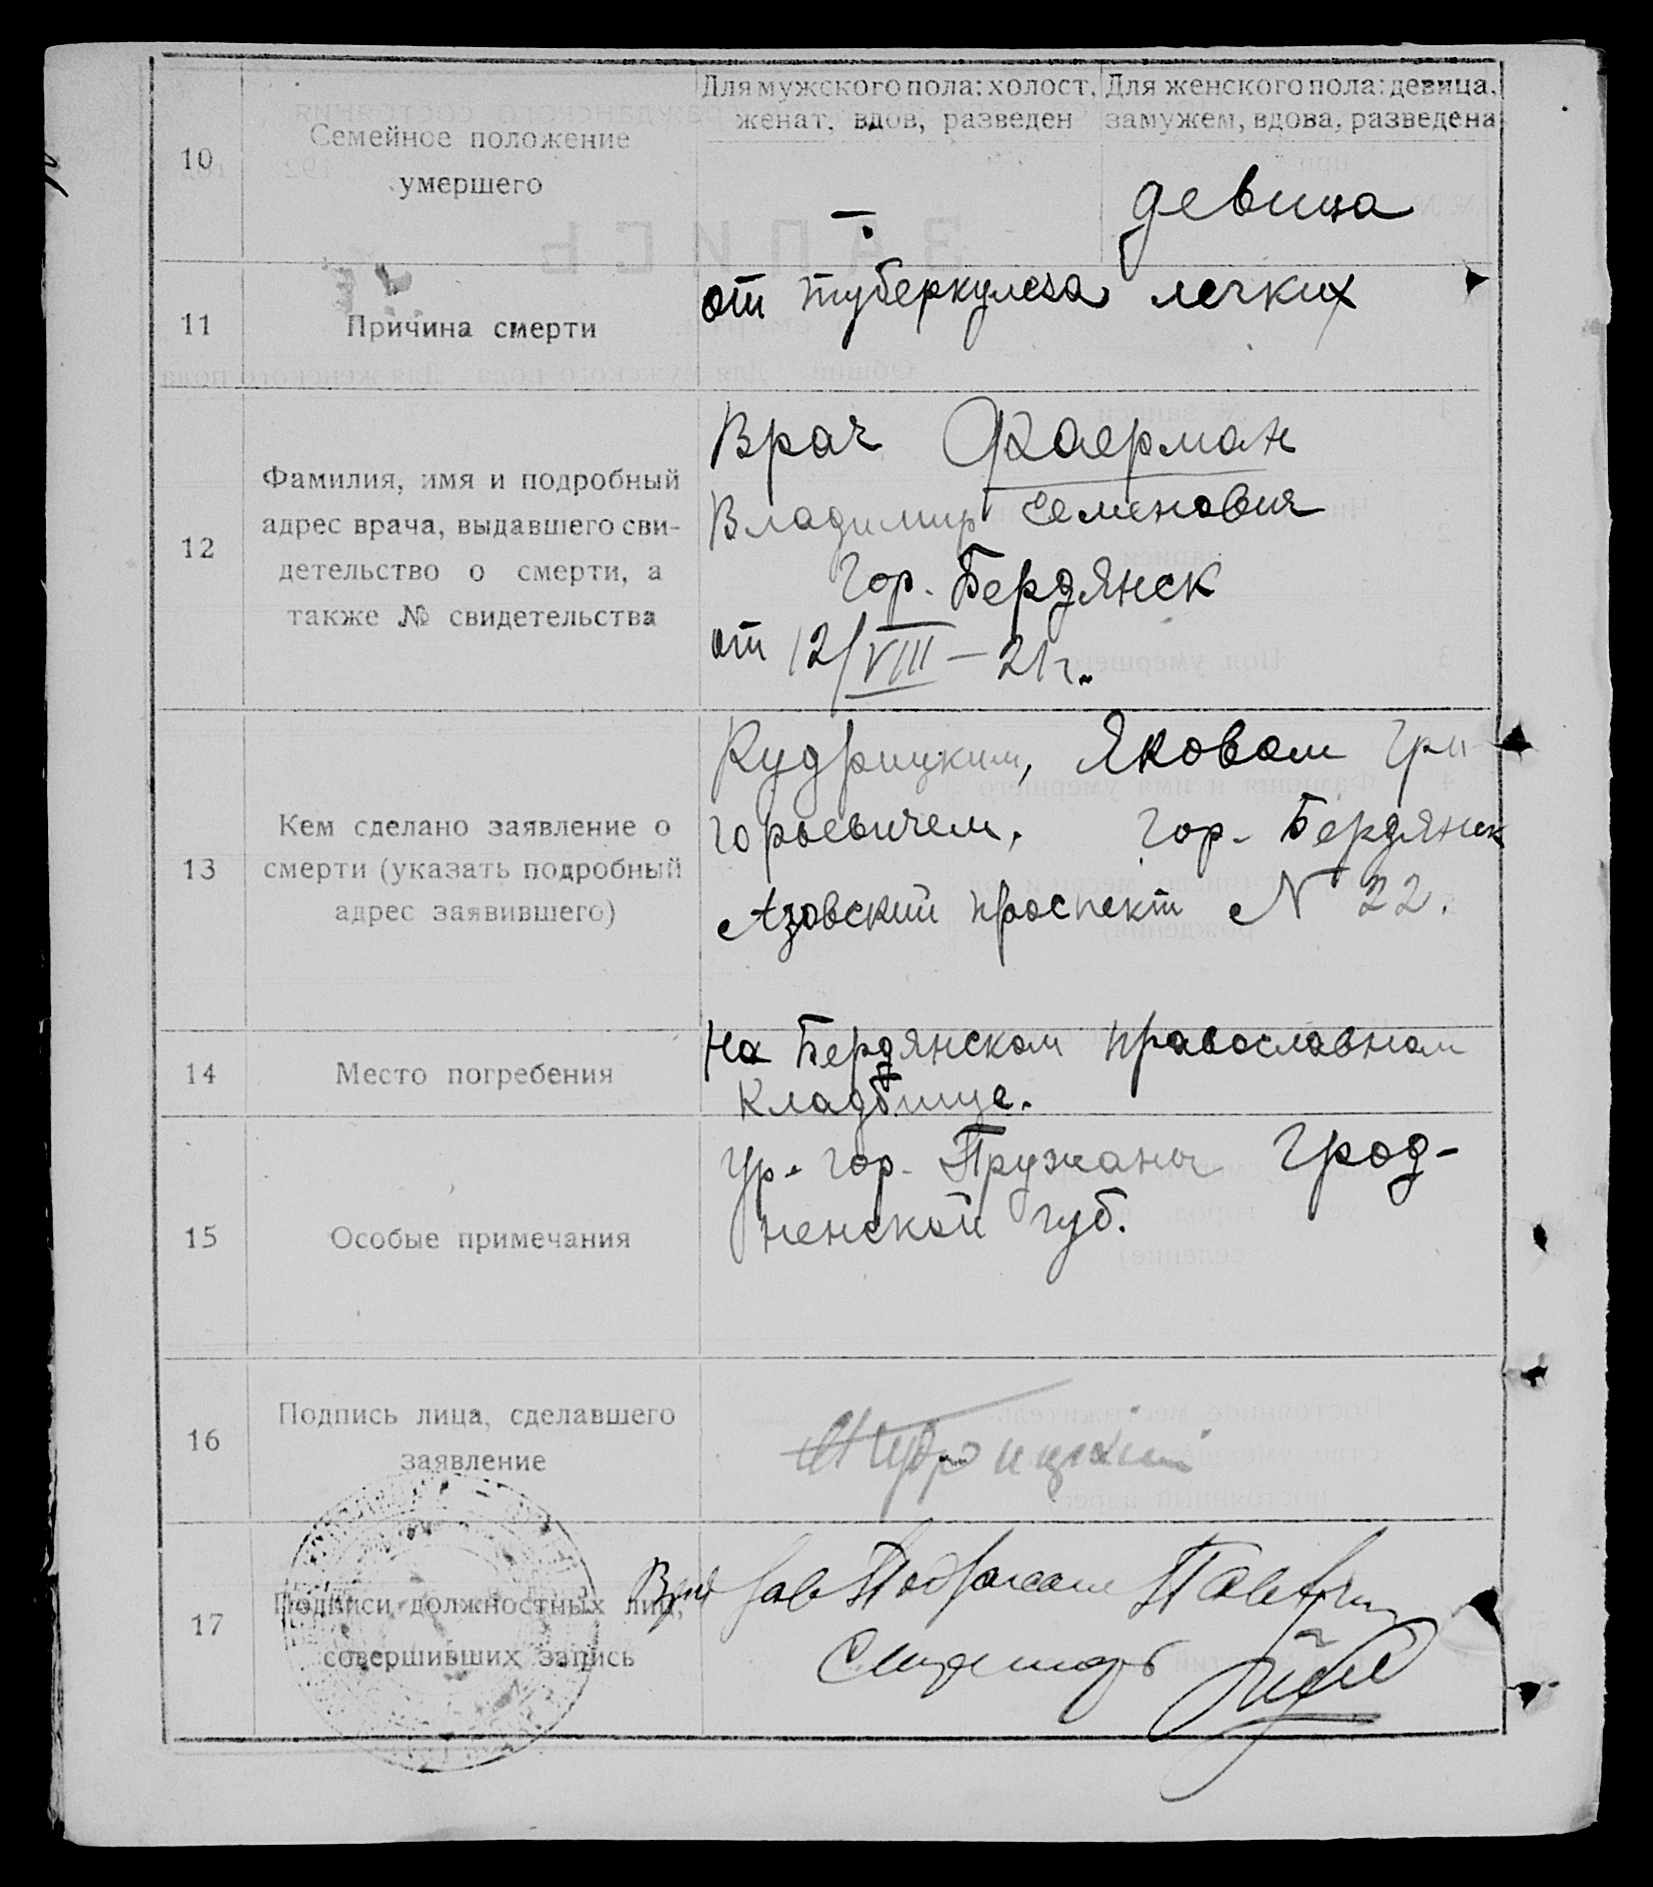 Для мужского пола: холост, женат, вдов, разведен
Для женского пола: девица, замужем, вдова, разведена
10
Семейное положение
умершего
девица
11
Причина смерти
от туберкулеза легких
12
Фамилия, имя и подробный
адрес врача, выдавшего сви-
детельство о смерти, а
также № свидетельства
Врач Фаерман
Владимир Семенович
Гор. Бердянск
от 12/VIII – 21 г.
13
Кем сделано заявление о
смерти (указать подробный
адрес заявившего)
Кудрицким, Яковом Гри-
горьевичем, гор. Бердянск
Азовский проспект N 22.
14
Место погребения
На Бердянском православном
кладбище.
15
Особые примечания
Ур. гор. Пружаны Грод-
ненской губ.
16
Подпись лица, сделавшего
заявление
17
Подписи должностных лиц,
совершивших запись